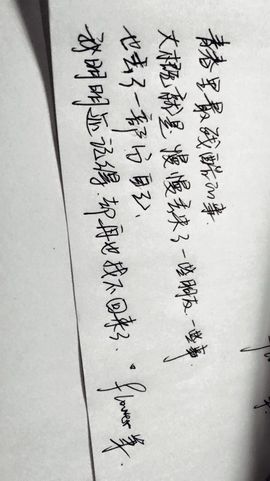 青春里最残酷的事
大概就是慢慢丢失了一些朋友.一些事
也丢了一部分自己、
我明明还记得.却再也找不回来了.
flower笔.